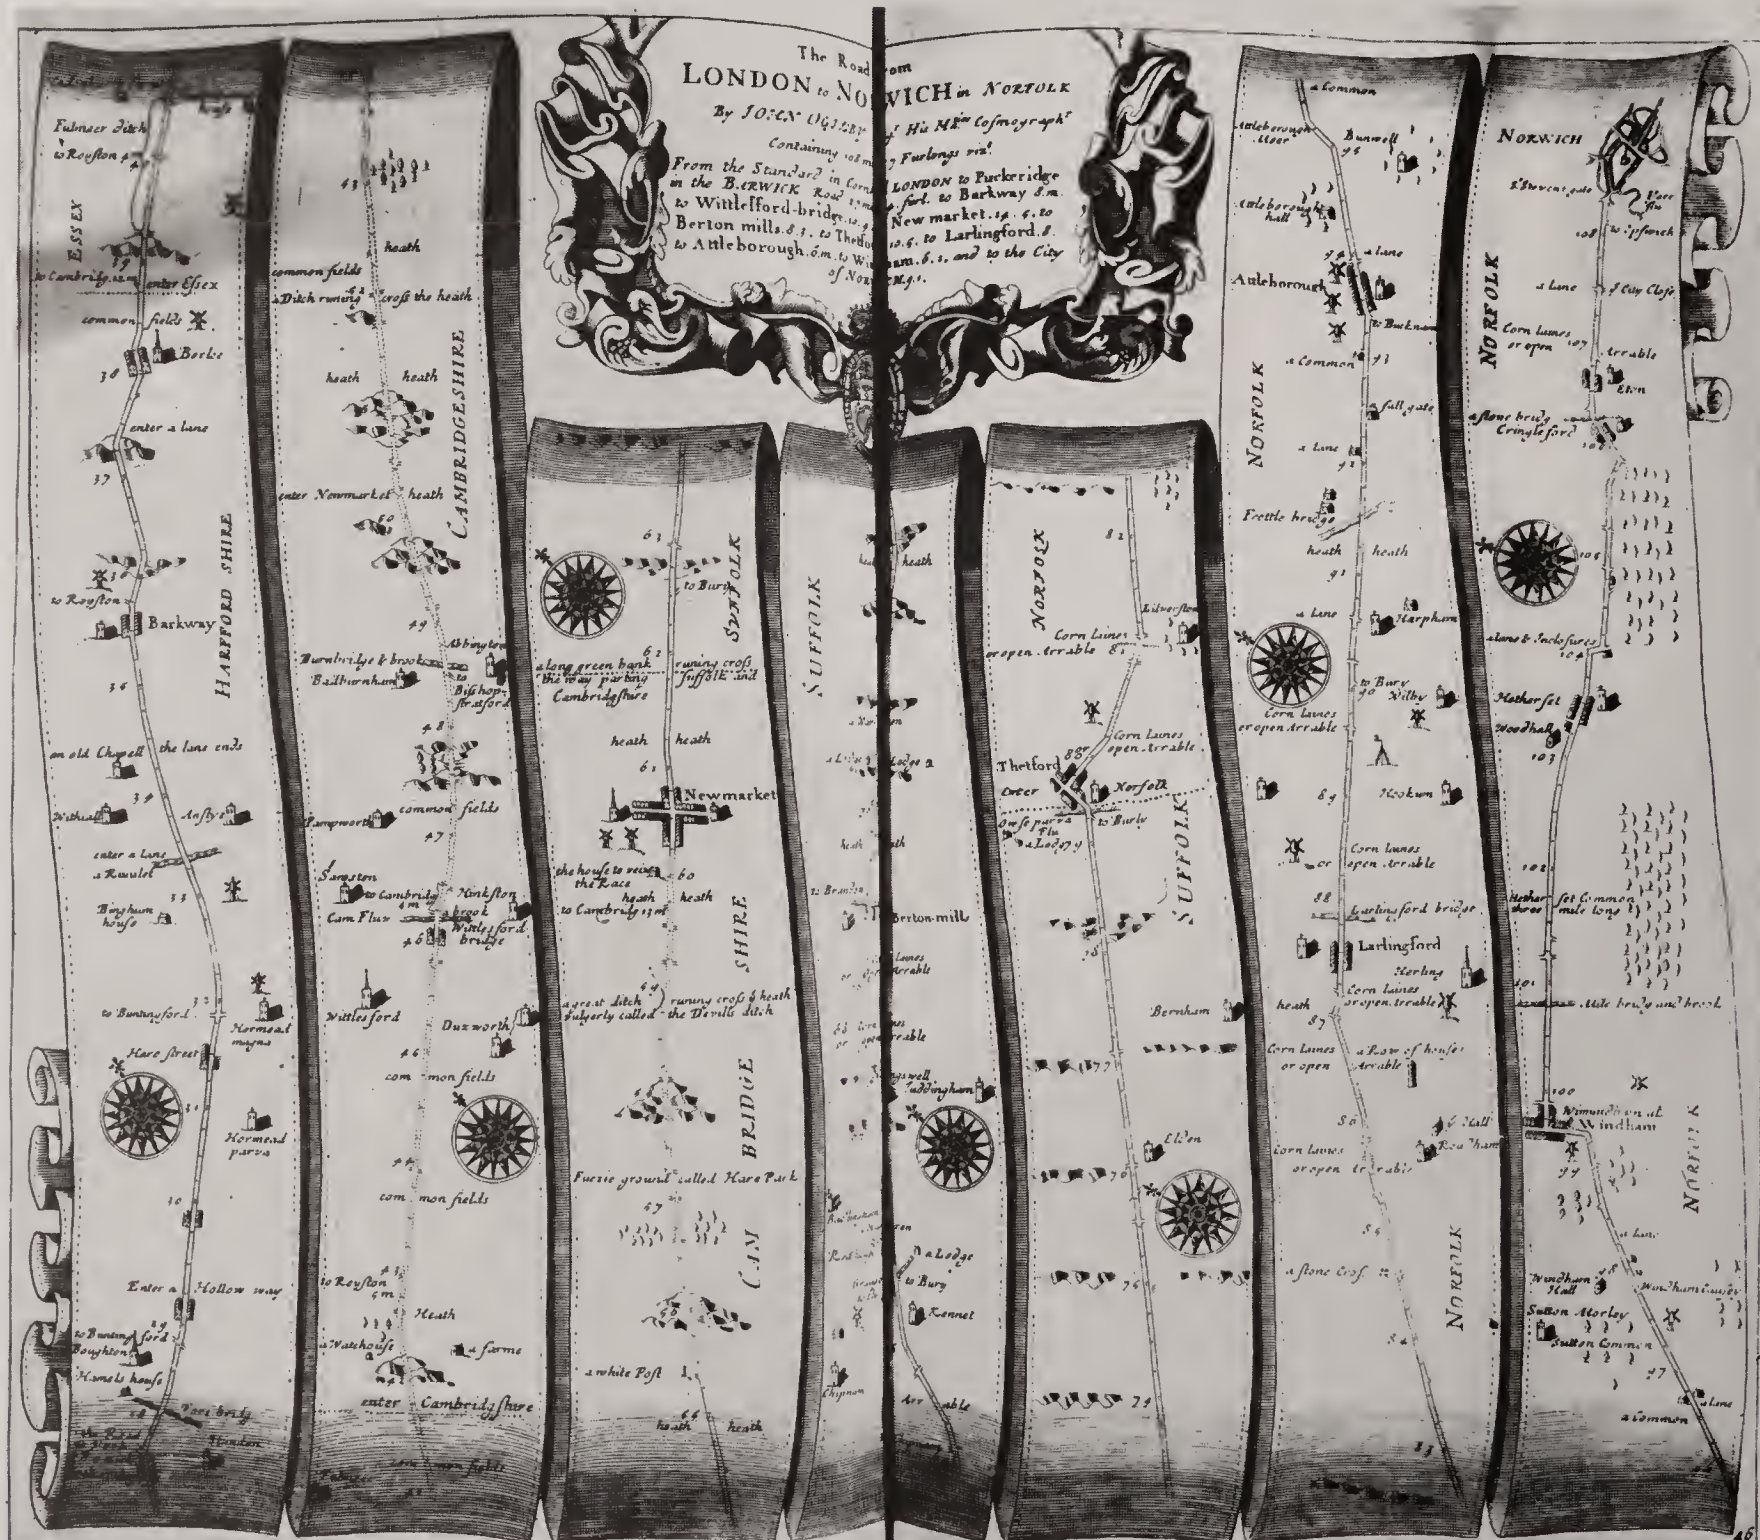 The Road
LONDON to NORWICH in NORFOLK
By JOHN OGILBY His Ma.ties Cosmographr
Containing Furlongs vizt
From the Standard in LONDON to Puckeridge
in the BARWICK Road furl. to Barkway 8.m.
to Wittlesford-bridge New market.14.4.to
Berton mills.8.3. to Thetford 10.5. to Larlingford.8.
to Attleborough.6.m. to 6.1, and to the City
of
Fulmaer ditch
to Royston
ESSEX
39
to Cambridg 12 m
enter Essex
common fields
Berke
38
enter a lane
37
HARFORD SHIRE
to Royston
Barkway
35
an old Chapell
the lane ends
34
Anstye
enter a lane
a Rivulet
33
Bingham
house
32
to Buntingford
Hormead
magna
Hare street
31
Hormead
parva
30
Enter a Hollow way
29
to Bunting ford
Boughton
Hamels house
28
43
heath
common fields
a Ditch runing cross the heath
CAMBRIDGESHIRE
heath heath
enter Newmarket heath
50
49
Abbington
Burnbridge & brook
Badburnham
to
Bishop-
stratford
48
common fields
Pampworth
47
Sauston
to Cambridg
Hinkston
Cam Flux
a brook
Wittlesford
bridge
46
Wittlesford
Duxworth
com mon fields
44
com mon fields
to Royston
5 m
Heath
a Watchouse
a farme
enter Cambridgshire
com mon fields
63
to Bury
SUFFOLK
62
a long green bank runing cross
the way parting Suffolk and
Cambridgshire
heath heath
61
Newmarket
the house to veiw
the Race
60
heath heath
to Cambridg 13 m
SHIRE
59
a great ditch runing cross ye heath
vulgerly called the Devills ditch
BRIDGE
Furzie ground called Hare Park
57
CAM
56
a white Post
heath heath
SUFFOLK
heath
Lodge
heath
to Brandon
Berton-mills
Tuddingham
a Lodge
to Bury
Kennet
Chipnam
Arr able
82
NORFOLK
Lilverston
Corn Lanes
or open Arrable
81
Corn Lanes
open Arrable
80
Thetford
Enter Norfolk
Owse parva
Flu
to Bury
a Lodg
79
SUFFOLK
78
Bernham
77
Elden
76
75
74
a Common
Attleborough
Meer
Bunwell
95
Attleborough
hall
94
a lane
Attleborough
to Bucknam
a Common
93
fall gate
NORFOLK
a lane
92
Frettle bridge
heath heath
91
a lane
Harpham
to Bury
90
Wilby
Corn Lanes
or open Arrable
89
Hookum
Corn lanes
or open Arrable
88
Larlingford bridge
Larlingford
Herling
Corn lanes
or open Arrable
heath
87
Corn lanes
or open Arrable
a Row of houses
86
Hall
Rowtham
Corn lanes
or open Arrable
85
a stone Cross
84
NORFOLK
83
NORWICH
St Stevens gate
Yare
flu
108
to Ipswich
NORFOLK
a lane
ye City Close
Corn lanes
or open Arrable
107
Eton
a stone bridg
Cringleford
106
105
a lane & Inclosures
104
Hetherset
Woodhall
103
102
Hether set Common
three mile long
101
Mile bridg and brook
100
Wimundham al.
Windham
99
NORFOLK
a lane
98
Windham
Hall
Windham Causey
Sutton Morley
Sutton Common
97
a lane
a Common